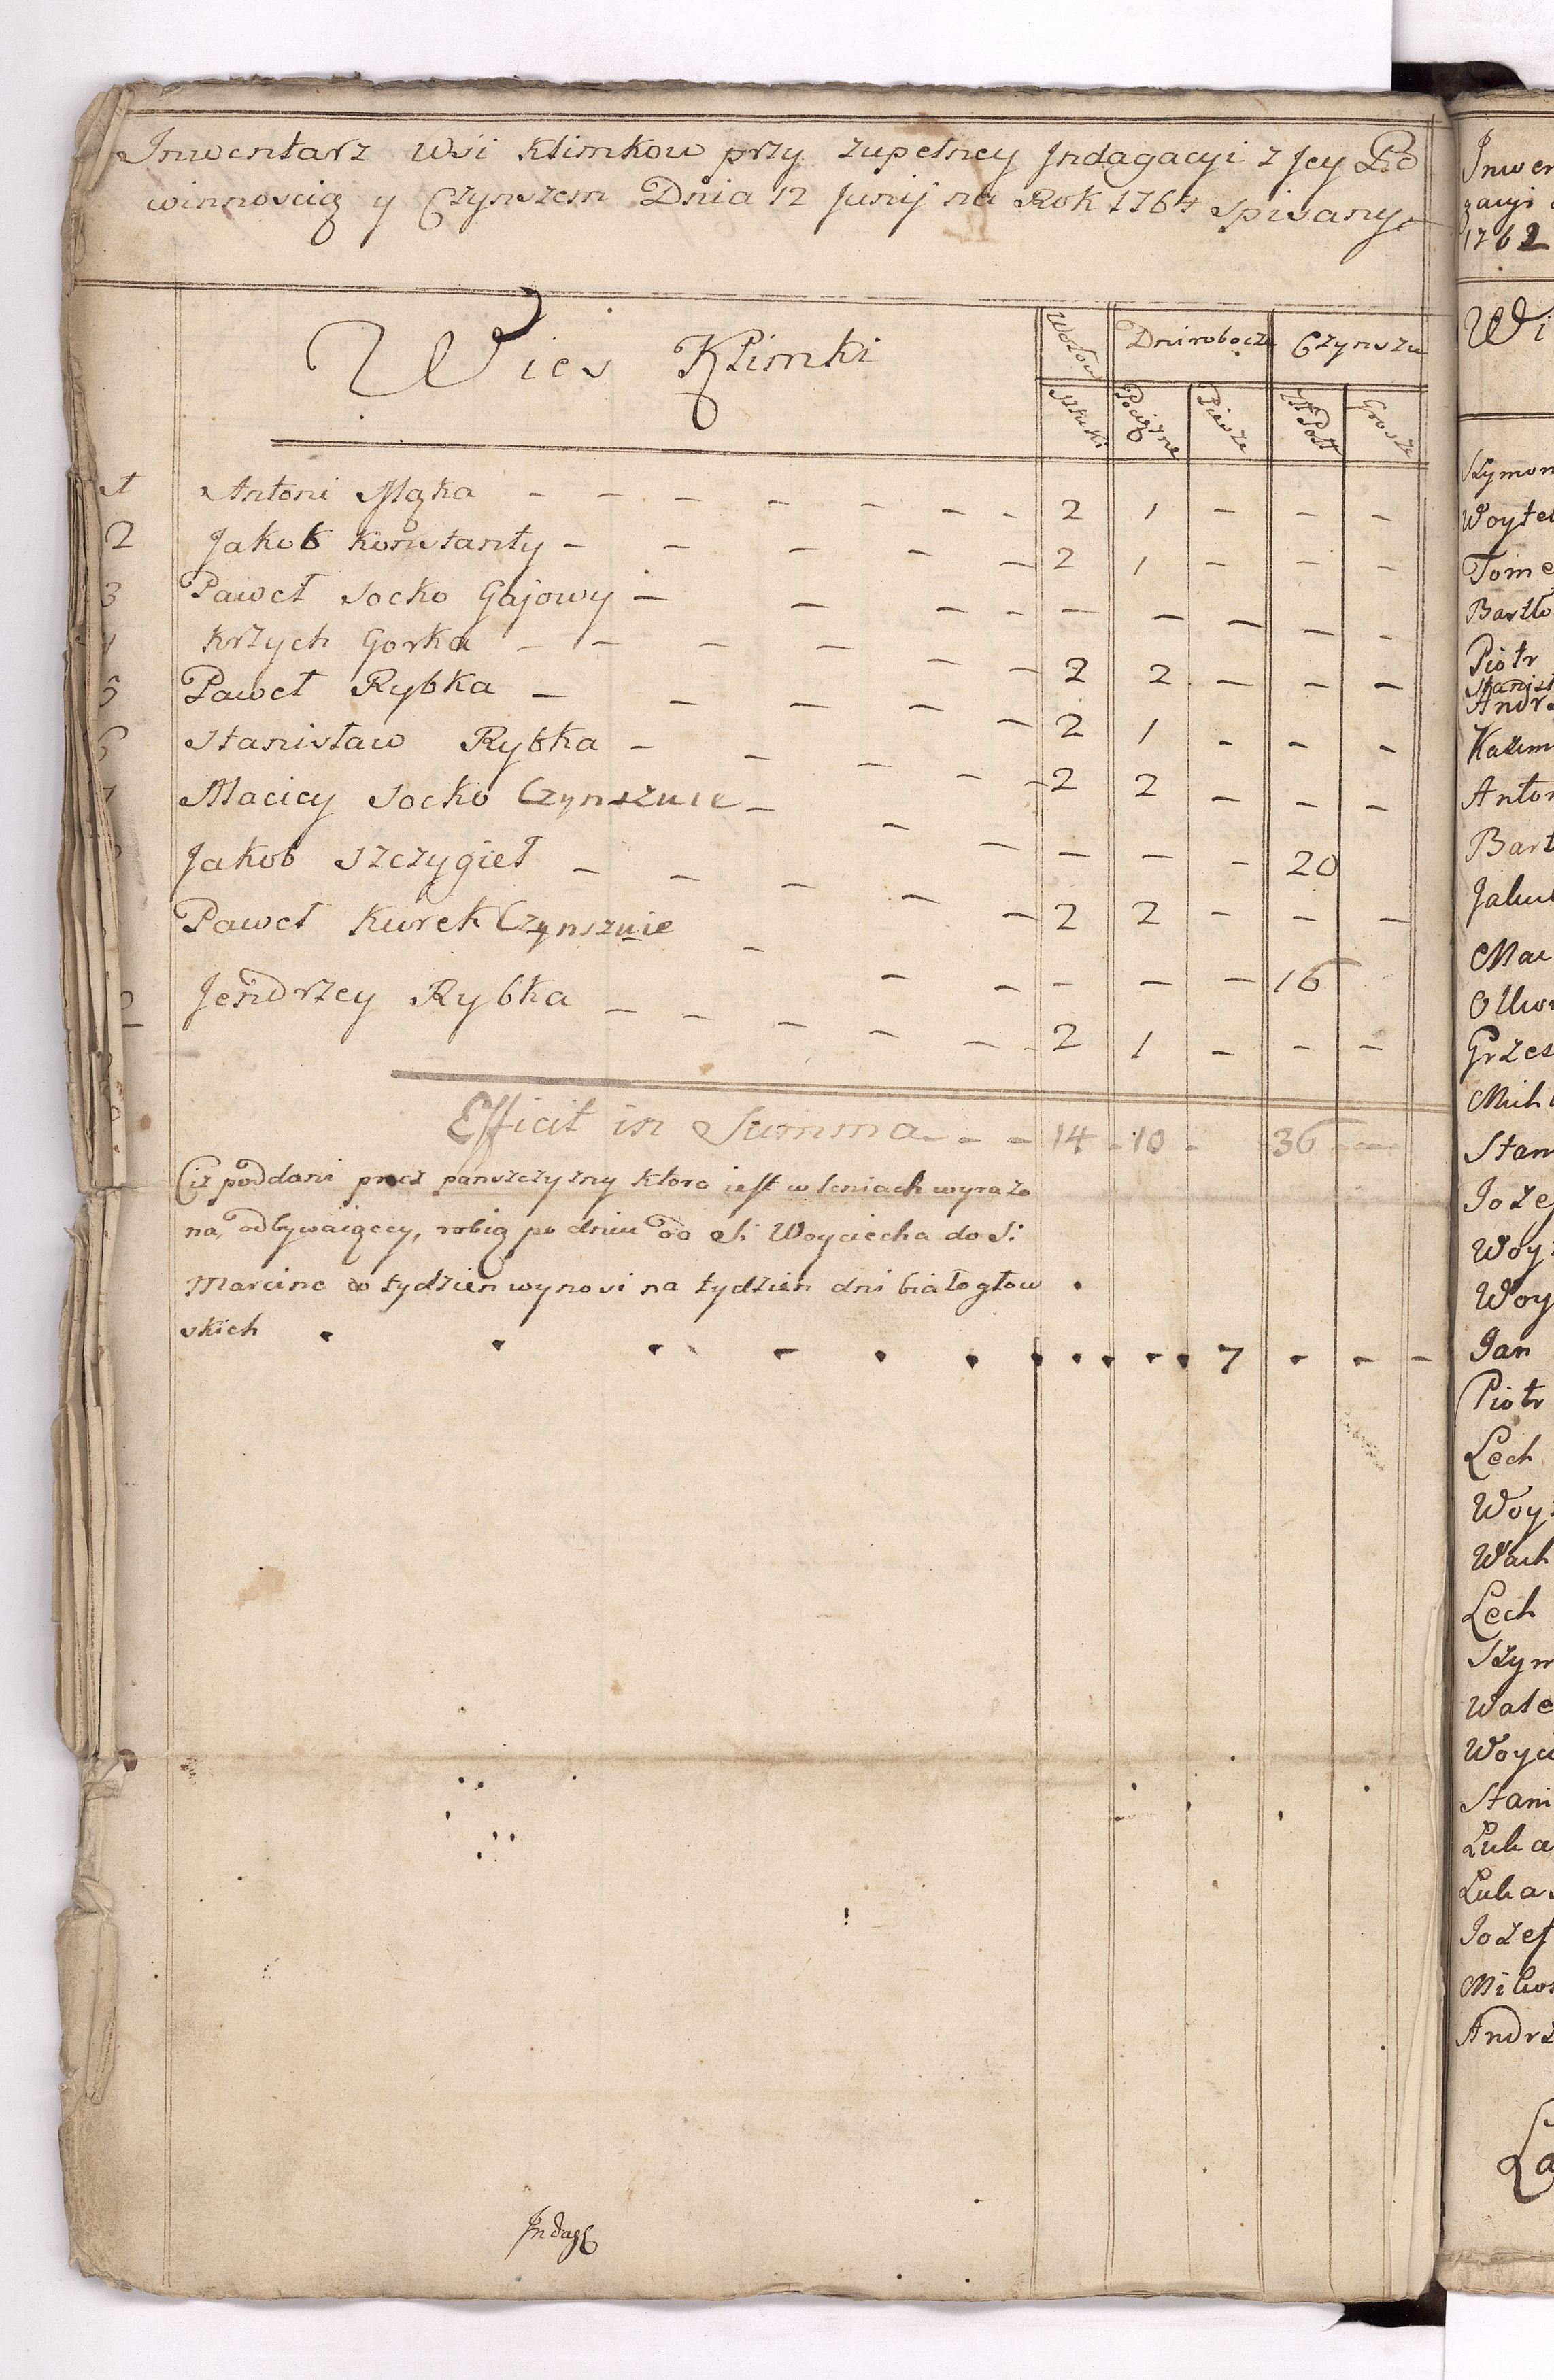 Inwentarz Wsi Klimkow przy zupełney Jndagacyi z Jey Po
winnoscią y Czynszem Dnia 12 Junij na Rok 1764 Spisany
Wies Klimki
Wołow
Dni robocze
Czynszu
sztuki
Pociężne
Piesze
Zł Poll
Grosze
1 Antoni Mąka - - - - - - - 2 1 - - -
2 Jakob Konstanty - - - - - 2 1 - - -
3 Paweł Socko Gajowy - - - - - - - - -
4 Krzych Gorka - - - - - 2 2 - - -
5 Paweł Rybka - - - - - 2 1 - - -
6 Stanisław Rybka - - - - - 2 2 - - -
7 Maciey Socko Czynszuie - - - - - - 20
Jakob Szczygieł - - - - - 2 2 - - -
Paweł Kurek Czynszuie - - - - - - 16
Jendrzey Rybka - - - - - 2 1 - - -
Efficit in Summa - - - 14 - 10 - 36 -
Ciż poddani procz panszczyzny ktora iest w leniach wyrażo
na, odbywaiącey, robią po dniu od S: Woyciecha do S:
Marcina w tydzien wynosi na tydzien dni białogłow
skich 7 - - -
Indag
Inwen
gacyi
1762
Wi
Szymon
Woyte
Tome
Bartło
Piotr
Stanisł
Andr
Kazim
Anton
Bart
Jakub
Mac
Grzes
Mich
Stan
Joze
Woy
Woy
Jan
Piotr
Lech
Woy
Wach
Lech
Szym
Wale
Woyci
Stani
Luka
Lukas
Jozef
Mikos
Andrz
La